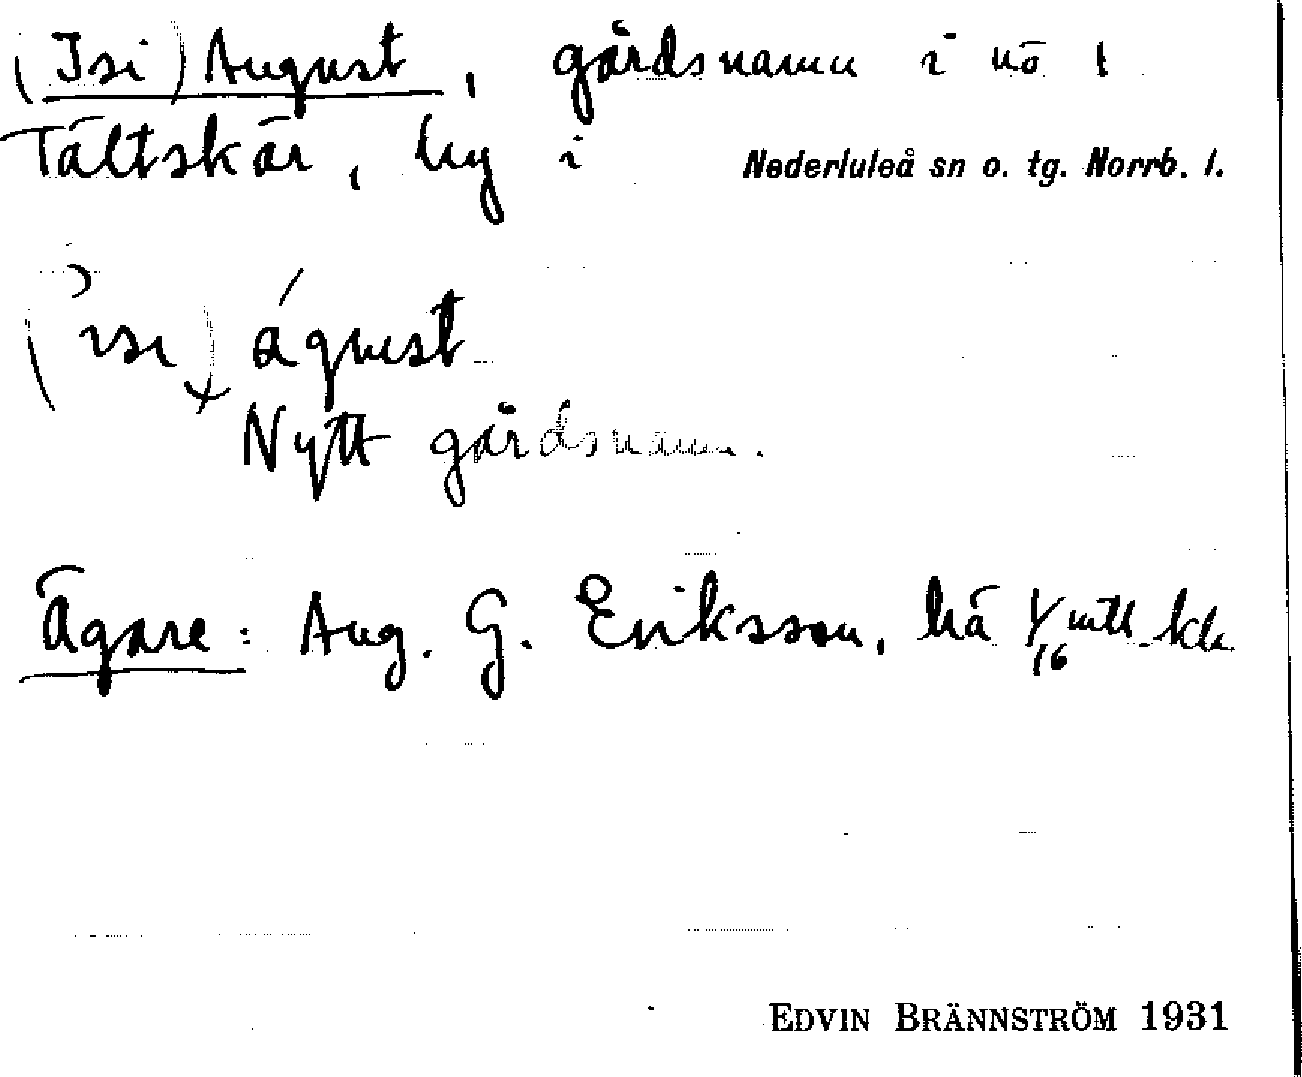 (Isi) August, gårdsnamn i nö 1
Tältskär, by i Nederluleå sn o. tg. Norrb. l.
(isi) águst
Nytt gårdsnamn.
Ägare: Aug. G. Eriksson, hä 1/16 mtl kr
EDVIN BRÄNNSTRÖM 1931